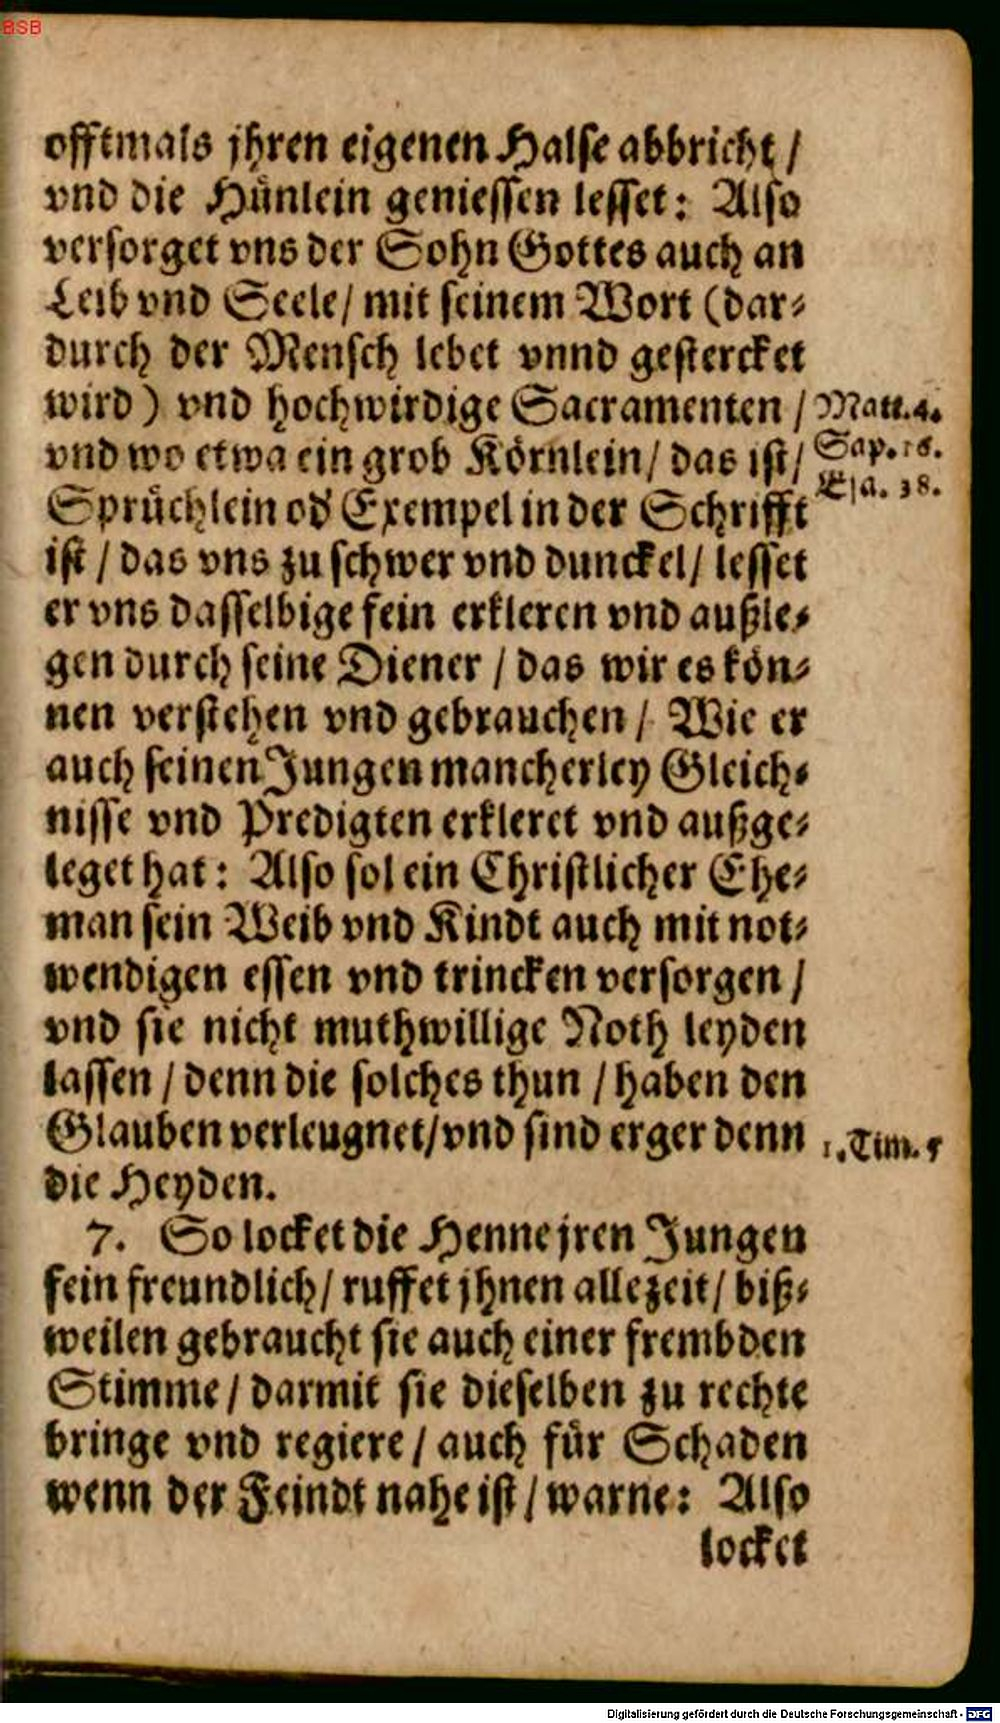 BSB
offtmals jhren eigenen Halse abbricht /
vnd die Hünlein geniessen lesset: Also
versorget vns der Sohn Gottes auch an
Leib vnd Seele / mit seinem Wort (dar-
durch der Mensch lebet vnnd gestercket
wird) vnd hochwirdige Sacramenten /
Matt. 4.
vnd wo etwa ein grob Körnlein / das ist /
Sap. 16.
Esa. 38.
Sprüchlein od Exempel in der Schrifft
ist / das vns zu schwer vnd dunckel / lesset
er vns dasselbige fein erkleren vnd außle-
gen durch seine Diener / das wir es kön-
nen verstehen vnd gebrauchen / Wie er
auch seinen Jungen mancherley Gleich-
nisse vnd Predigten erkleret vnd außge-
leget hat: Also sol ein Christlicher Ehe-
man sein Weib vnd Kindt auch mit not-
wendigen essen vnd trincken versorgen /
vnd sie nicht muthwillige Noth leyden
lassen / denn die solches thun / haben den
Glauben verleugnet / vnd sind erger denn
1. Tim. 5
die Heyden.
7. So locket die Henne jren Jungen
fein freundlich / ruffet jhnen allezeit / biß-
weilen gebraucht sie auch einer frembden
Stimme / darmit sie dieselben zu rechte
bringe vnd regiere / auch für Schaden
wenn der Feindt nahe ist / warne: Also
locket
Digitalisierung gefördert durch die Deutsche Forschungsgemeinschaft - DFG